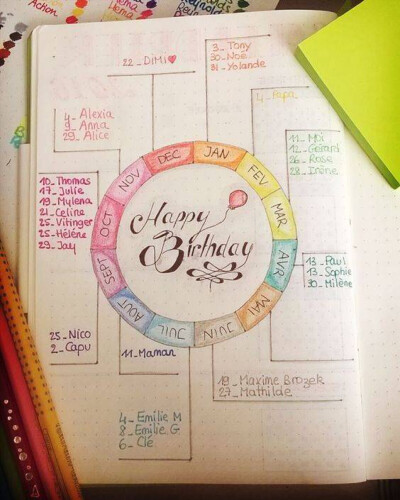 Action
22_ DiMi
3_ Tony
30_ Noé
31_ Yolande
4_ Papa
4_ Alexia
9_ Anna
29_ Alice
11_ Moi
12_ Gérard
26_ Rose
28_ Irène
10_ Thomas
17_ Julie
19_ Mylena
21_ Celina
25_ Vitinger
25_ Hélène
29_ Jay
DEC
JAN
FEV
MAR
AVR
MAI
JUIN
JUIL
AOUT
SEPT
OCT
NOV
Happy
Birthday
13_ Paul
13_ Sophie
30_ Milène
25_ Nico
2_ Capu
11_ Maman
19_ Maxime Brozek
27_ Mathilde
4_ Emilie M
8_ Emilie G
6_ Clé